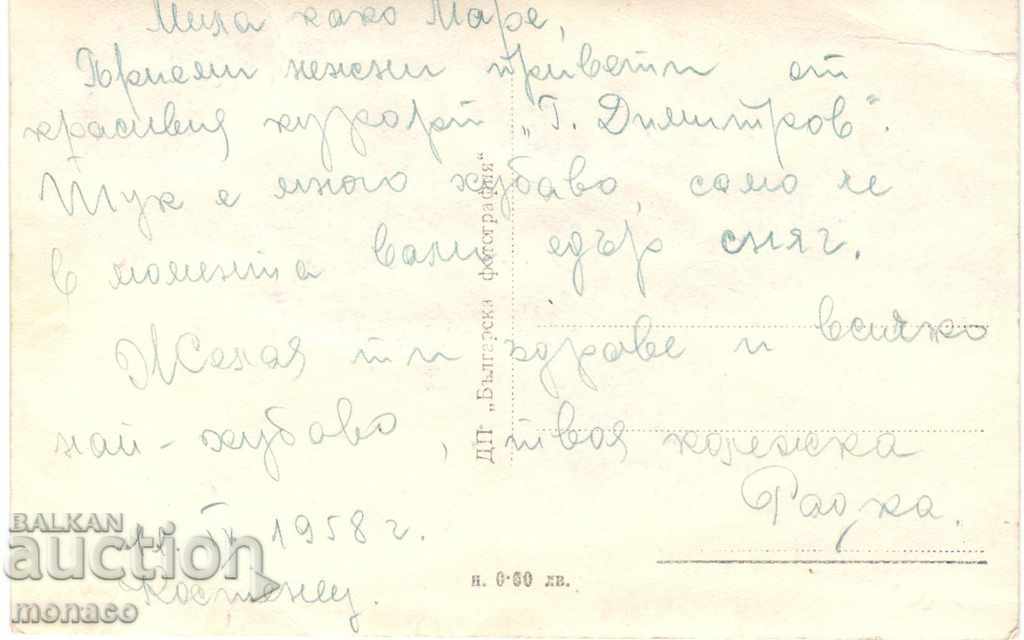 Мила како Маре,
Приеми нежни привети от
красивия курорт „Г. Димитров“.
Тук е много хубаво, само че
в момента вали едър сняг.
Желая ти здраве и всичко
най-хубаво, твоя колежка
Радка.
1958 г.
Костенец.
ДП „Българска фотография“
ц. 0·60 лв.
BALKAN
auction
monaco